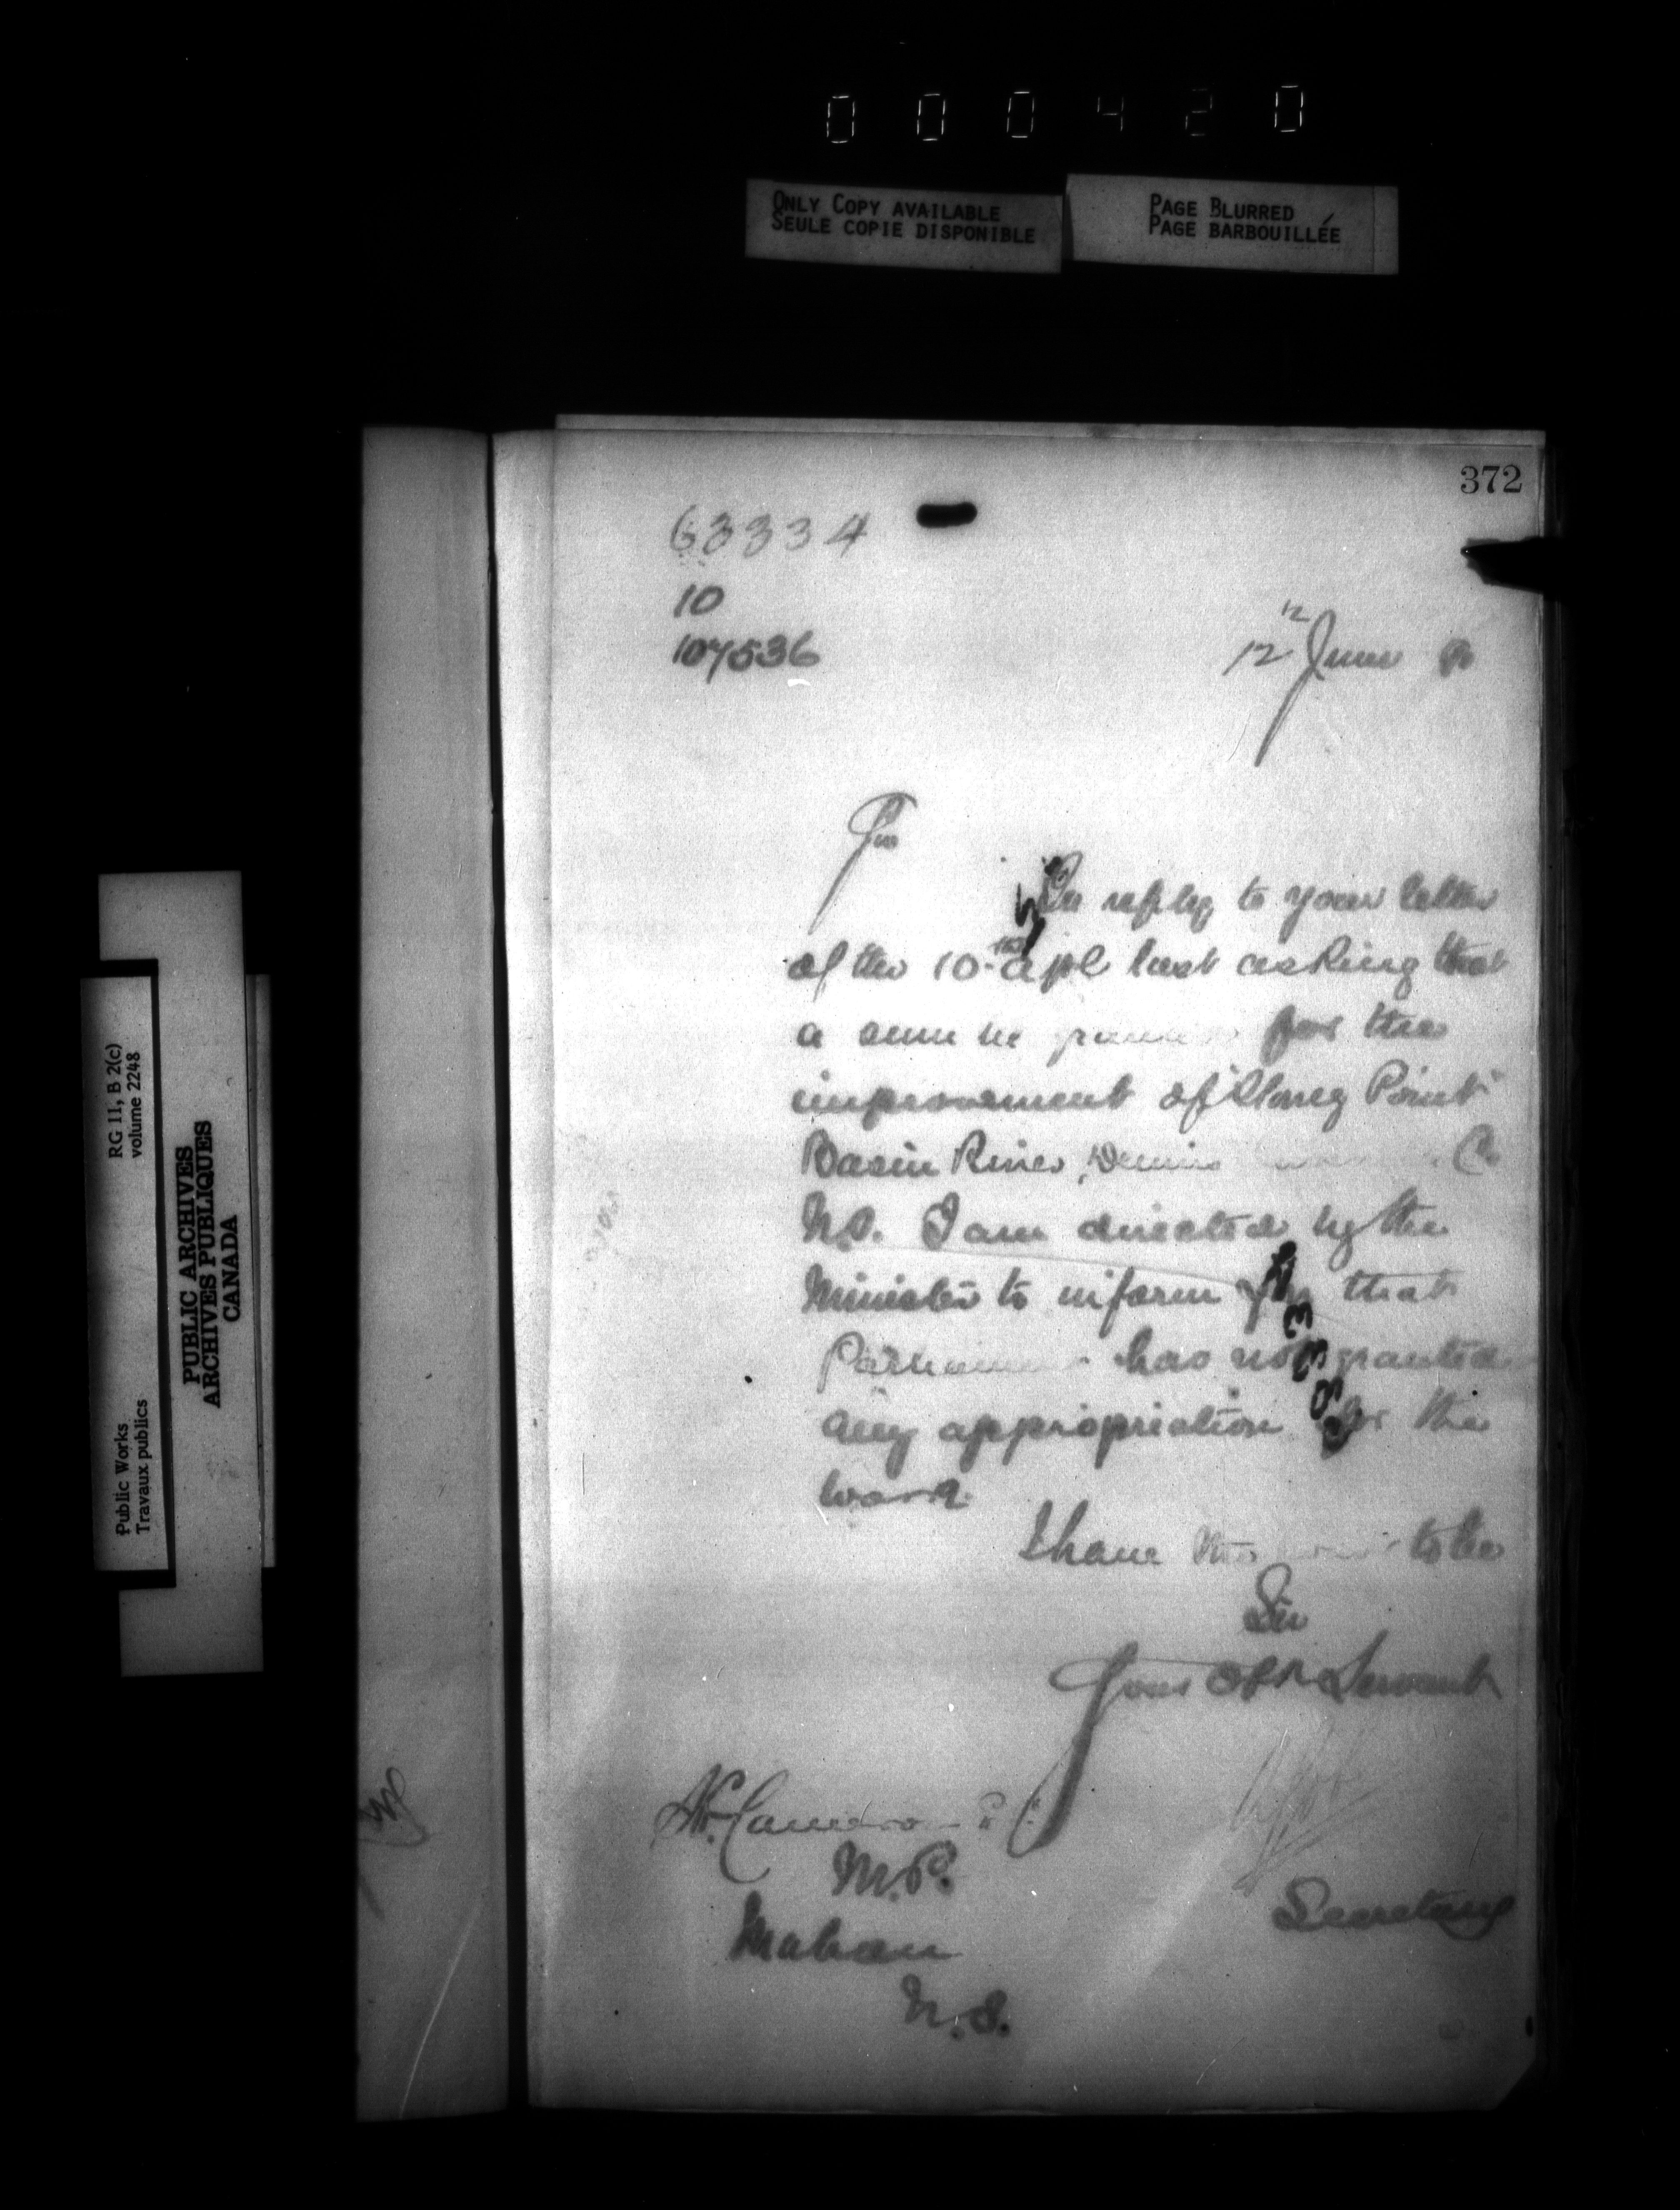 000420
ONLY COPY AVAILABLE
SEULE COPIE DISPONIBLE
PAGE BLURRED
PAGE BARBOUILLÉE
372
63334
10
107536
12 June
Sir
In reply to your letter
of the 10th Apl last asking that
a sum be for the
improvement of Point
Basin River Denis Co
N.S. I am directed by the
Minister to inform you that
Parliament has not granted
any appropriation for the
work.
I have the to be
Sir
Your Obt Servant
Cameron
M.P.
Mabou
N.S.
Secretary
RG 11, B 2(c)
volume 2248
Public Works
Travaux publics
PUBLIC ARCHIVES
ARCHIVES PUBLIQUES
CANADA